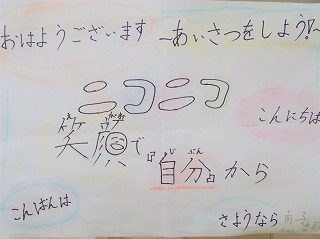 おはようございます ～あいさつをしよう!～
ニコニコ
こんにちは
笑顔で『自分』から
こんばんは
さようなら